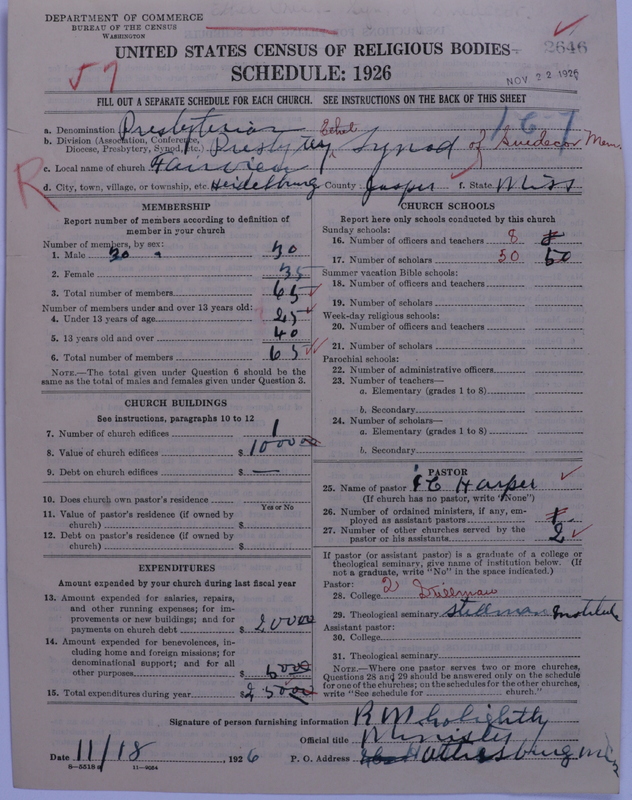 DEPARTMENT OF COMMERCE
BUREAU OF THE CENSUS
WASHINGTON
UNITED STATES CENSUS OF RELIGIOUS BODIES
2646
SCHEDULE: 1926
NOV 22 1926
FILL OUT A SEPARATE SCHEDULE FOR EACH CHURCH. SEE INSTRUCTIONS ON THE BACK OF THIS SHEET
a. Denomination Presbyterian 1-6-7
b. Division (Association, Conference, Diocese, Presbytery, Synod, etc.) Presbytery Ethel Synod of Snedecor Mem.
c. Local name of church Fairview
d. City, town, village, or township, etc. Heidelburg County Jasper f. State Miss
R
MEMBERSHIP
Report number of members according to definition of member in your church
Number of members, by sex:
1. Male 30 30
2. Female 35
3. Total number of members 65
Number of members under and over 13 years old:
4. Under 13 years of age 25
5. 13 years old and over 40
6. Total number of members 65
NOTE.—The total given under Question 6 should be the same as the total of males and females given under Question 3.
CHURCH BUILDINGS
See instructions, paragraphs 10 to 12
7. Number of church edifices 1
8. Value of church edifices $ 1000 00
9. Debt on church edifices $ —
10. Does church own pastor's residence
Yes or No
11. Value of pastor's residence (if owned by church) $
12. Debt on pastor's residence (if owned by church) $
EXPENDITURES
Amount expended by your church during last fiscal year
13. Amount expended for salaries, repairs, and other running expenses; for improvements or new buildings; and for payments on church debt $ 200 00
14. Amount expended for benevolences, including home and foreign missions; for denominational support; and for all other purposes $ 50 00
15. Total expenditures during year $ 250 00
CHURCH SCHOOLS
Report here only schools conducted by this church
Sunday schools:
16. Number of officers and teachers 8
17. Number of scholars 50 50
Summer vacation Bible schools:
18. Number of officers and teachers
19. Number of scholars
Week-day religious schools:
20. Number of officers and teachers
21. Number of scholars
Parochial schools:
22. Number of administrative officers
23. Number of teachers—
a. Elementary (grades 1 to 8)
b. Secondary
24. Number of scholars—
a. Elementary (grades 1 to 8)
b. Secondary
PASTOR
25. Name of pastor Harper
(If church has no pastor, write "None")
26. Number of ordained ministers, if any, employed as assistant pastors
27. Number of other churches served by the pastor or his assistants 2
If pastor (or assistant pastor) is a graduate of a college or theological seminary, give name of institution below. (If not a graduate, write "No" in the space indicated.)
Pastor:
28. College Stillman
29. Theological seminary Stillman Institute
Assistant pastor:
30. College
31. Theological seminary
NOTE.—Where one pastor serves two or more churches, Questions 28 and 29 should be answered only on the schedule for one of the churches; on the schedules for the other churches, write "See schedule for ............ church."
Signature of person furnishing information R M Golightly
Official title Minister
Date 11/18 1926 P. O. Address Hattiesburg Miss
8—5518 a 11—9084